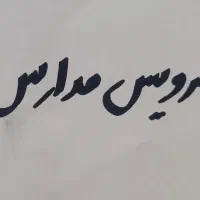 سرویس مدارس